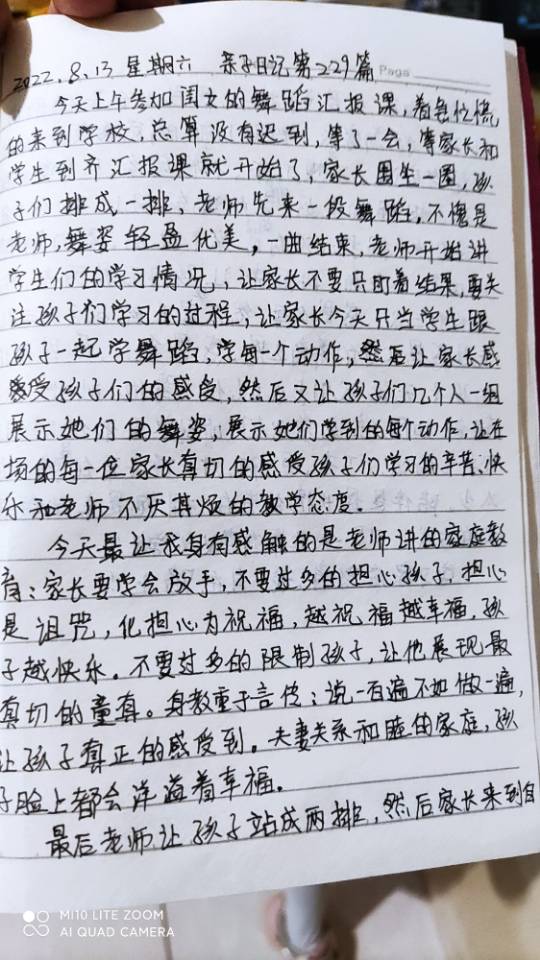 2022.8.13 星期六 亲子日记第229篇 Page
今天上午参加闺女的舞蹈汇报课,着急忙慌
的来到学校,总算没有迟到,等了一会,等家长和
学生到齐汇报课就开始了,家长围坐一圈,孩
子们排成一排、老师先来一段舞蹈,不愧是
老师,舞姿轻盈优美,一曲结束,老师开始讲
学生们的学习情况,让家长不要只盯着结果,要关
注孩子们学习的过程,让家长今天只当学生跟
孩子一起学舞蹈,学每一个动作,然后让家长感
受孩子们的感受,然后又让孩子们几个人一组
展示她们的舞姿,展示她们学到的每个动作,让在
场的每一位家长真切的感受孩子们学习的辛苦、快
乐和老师不厌其烦的教学态度.
今天最让我身有感触的是老师讲的家庭教
育:家长要学会放手,不要过多的担心孩子,担心
是诅咒,化担心为祝福,越祝福越幸福,孩
子越快乐。不要过多的限制孩子,让他展现最
真切的童真。身教重于言传:说一百遍不如做一遍,
让孩子真正的感受到。夫妻关系和睦的家庭,孩
子脸上都会洋溢着幸福.
最后老师让孩子站成两排,然后家长来到自
MI 10 LITE ZOOM
AI QUAD CAMERA